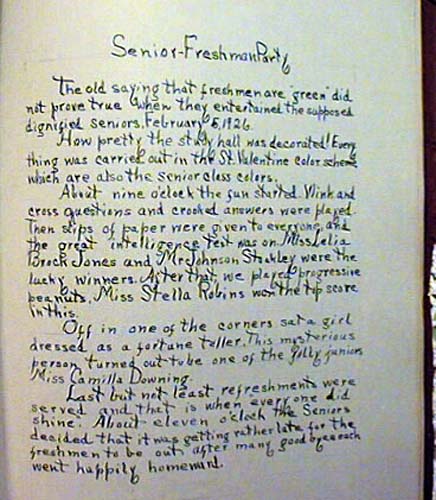 Senior-Freshman Party
The old saying that freshmen are "green" did
not prove true when they entertained the supposed
dignified seniors, February 5, 1926.
How pretty the study hall was decorated! Every
thing was carried out in the St. Valentine color scheme,
which are also the Senior class colors.
About nine o'clock the fun started. Wink and
cross questions and crooked answers were played.
Then slips of paper were given to everyone, and
the great intelligence test was on. Miss Lelia
Brock Jones and Mr. Johnson Stokley were the
lucky winners. After that, we played progressive
peanuts, Miss Stella Robins won the top score
in this.
Off in one of the corners sat a girl
dressed as a fortune teller. This mysterious
person turned out to be one of the jolly juniors
Miss Camilla Downing.
Last but not least refreshments were
served and that is when every one did
shine. About eleven o'clock the Seniors
decided that it was getting rather late for the
freshmen to be out, after many good byes each
went happily homeward.